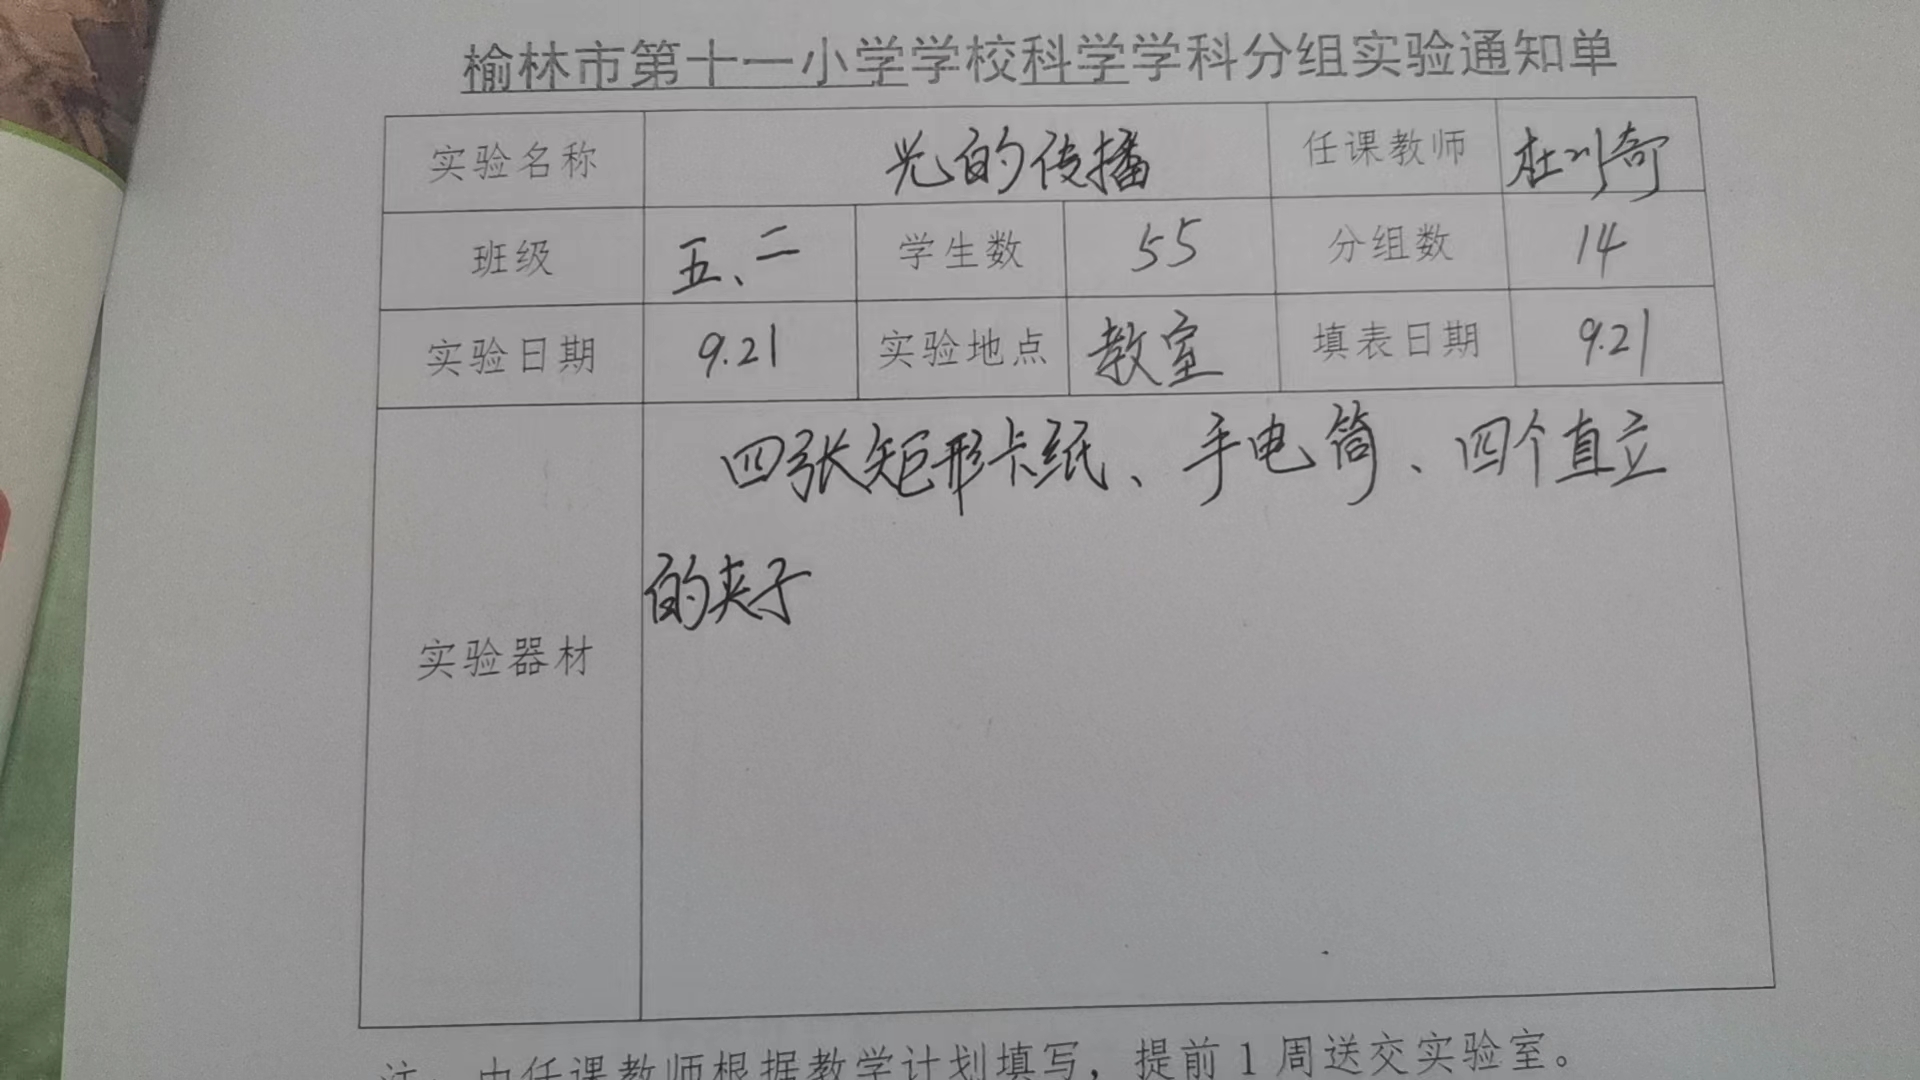 榆林市第十一小学学校科学学科分组实验通知单
实验名称 光的传播 任课教师 杜小奇
班级 五、二 学生数 55 分组数 14
实验日期 9.21 实验地点 教室 填表日期 9.21
实验器材 四张矩形卡纸、手电筒、四个直立
的夹子
注：由任课教师根据教学计划填写，提前1周送交实验室。